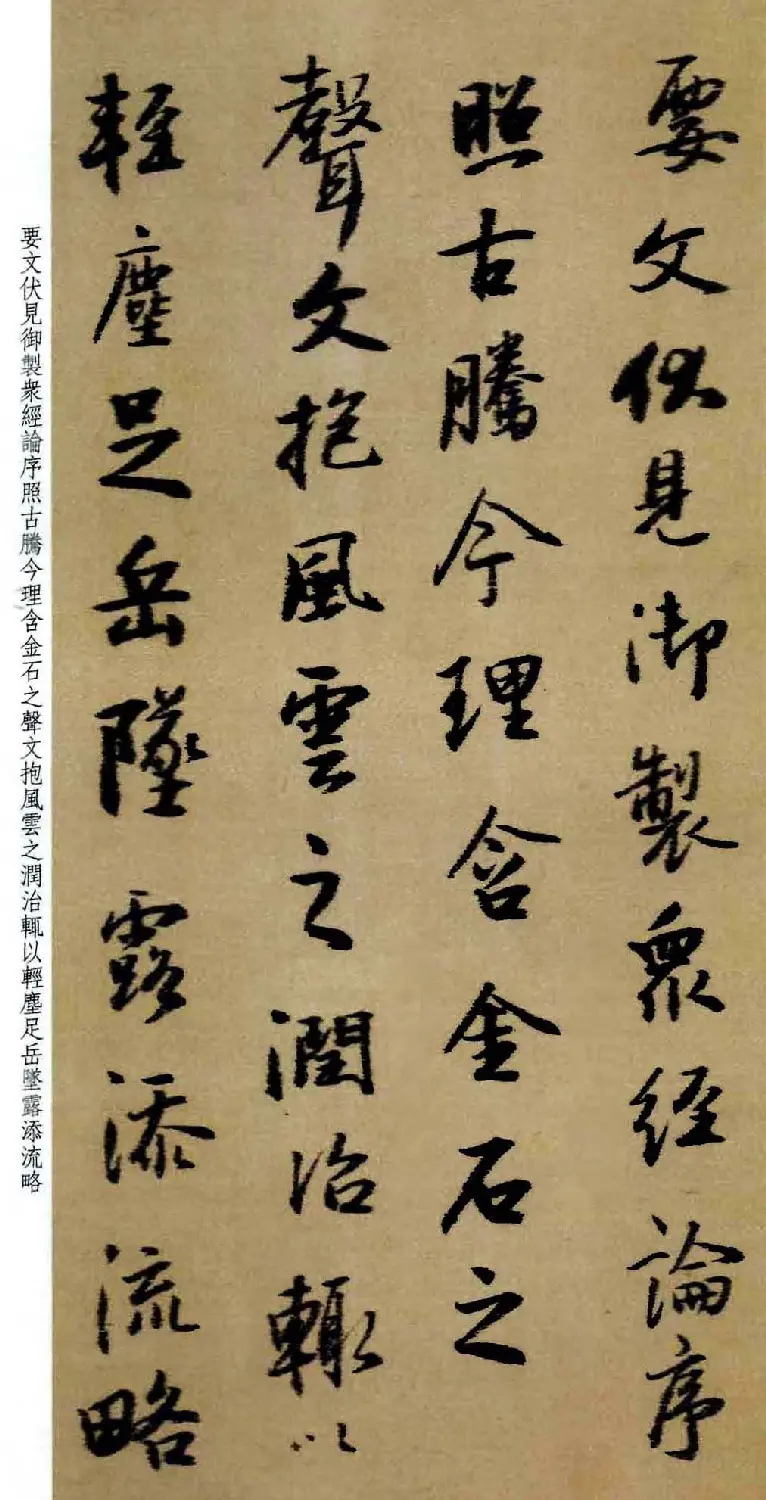 要文伏見御製衆經論序
照古騰今理含金石之
聲文抱風雲之潤治輒以
輕塵足岳墜露添流略
要文伏見御製衆經論序照古騰今理含金石之聲文抱風雲之潤治輒以輕塵足岳墜露添流略